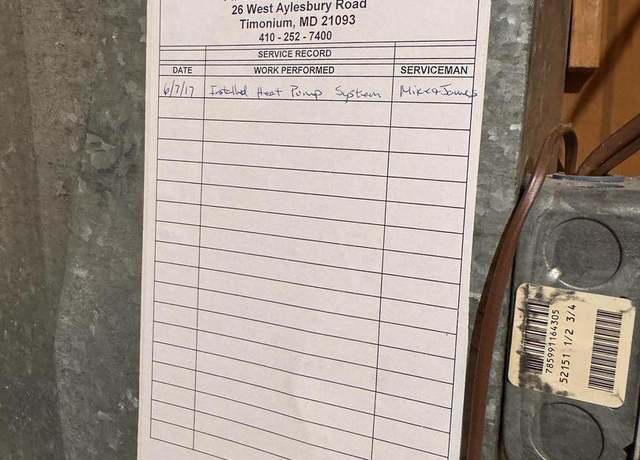 26 West Aylesbury Road
Timonium, MD 21093
410 - 252 - 7400
SERVICE RECORD
DATE WORK PERFORMED SERVICEMAN
6/7/17 Installed Heat Pump System Mike & James
785991164305
52151 1/2 3/4